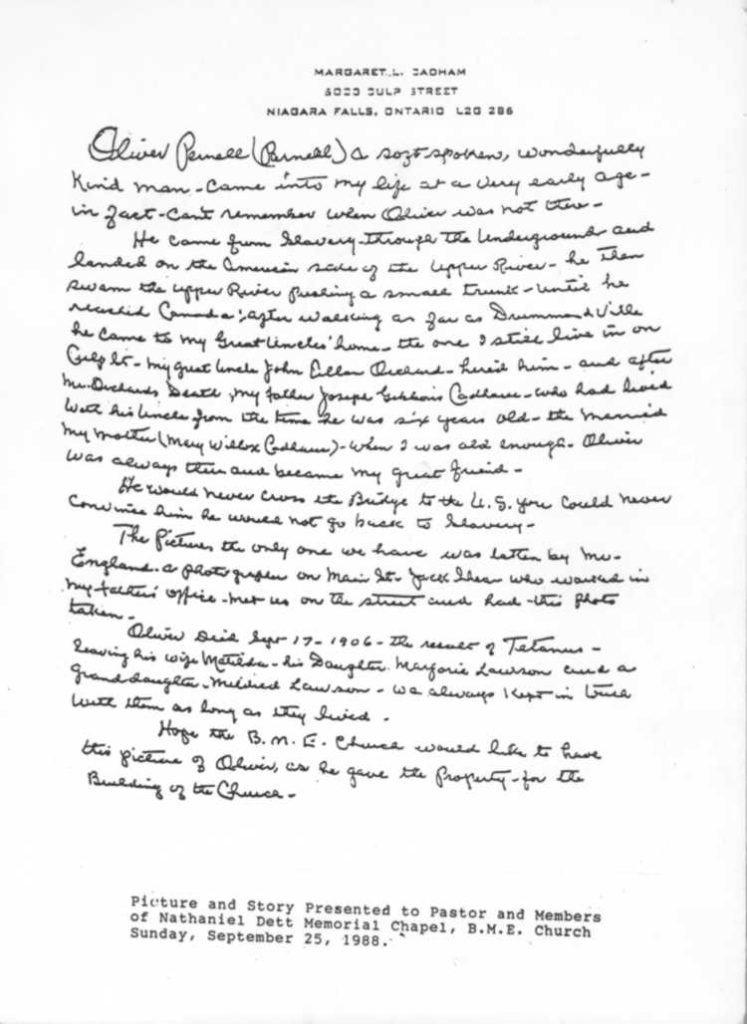 MARGARET L. CADHAM
CULP STREET
NIAGARA FALLS, ONTARIO L2G 2B6
Oliver Pernell (Parnell) a soft spoken, wonderfully
Kind man - Came into my life at a very early age -
in fact - Can't remember when Oliver was not there -
He came from Slavery - through the Underground and
landed on the American side of the Upper River - he then
swam the upper River pushing a small trunk - until he
reached Canada: after walking as far as Drummondville
he came to my Great Uncles' home - the one I still live in on
Culp St - my great Uncle John Ellan Orchard - hired him - and after
Mr. Orchards Death, my father Joseph Gibbons Cadham - who had lived
With his Uncle from the time he was six years old - the married
My mother (Mary Willox Cadham) - when I was old enough - Oliver
was always there and became my great friend -
He would never cross the Bridge to the U.S. you could never
Convince him he would not go back to Slavery -
The Picture, the only one we have was taken by Mr.
England - a photographer on Main St - Jack Shea who worked in
my father's office - met us on the street and had - this photo
taken -
Oliver Died Sept 17 - 1906 - the result of Tetanus -
leaving his wife Matilda - his Daughter Marjorie Lawson and a
Granddaughter - Mildred Lawson - We always kept in touch
with them as long as they lived.
Hope the B.M.E. Church would like to have
this picture of Oliver, as he gave the Property - for the
Building of the Church -
Picture and Story Presented to Pastor and Members
of Nathaniel Dett Memorial Chapel, B.M.E. Church
Sunday, September 25, 1988.